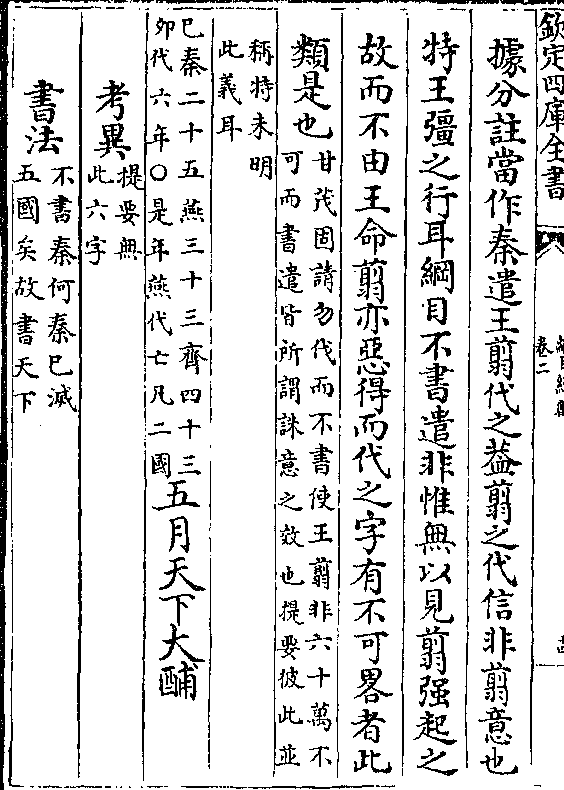 欽定四庫全書
卷二
據分註當作秦遣王翦代之葢翦之代信非翦意也
特王彊之行耳綱目不書遣非惟無以見翦强起之
故而不由王命翦亦惡得而代之字有不可畧者此
類是也
甘茂固請勿伐而不書使王翦非六十萬不
可而書遣皆所謂誅意之效也提要彼此並
稱特未明
此義耳
己秦二十五燕三十三齊四十三
卯代六年〇是年燕代亡凡二國
五月天下大酺
考異
提要無
此六字
書法
不書秦何秦已滅
五國矣故書天下